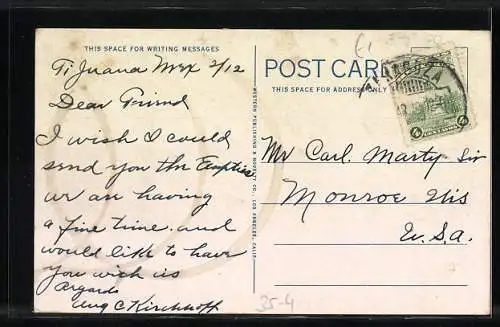 THIS SPACE FOR WRITING MESSAGES
Ti Juana Mex 2/12
Dear Friend
I wish I could
send you the Empties
we are having
a fine time. and
would like to have
you with us
Regards
Aug C Kirchhoff
WESTERN PUBLISHING & NOVELTY CO., LOS ANGELES, CALIF.
POST CARD
THIS SPACE FOR ADDRESS ONLY
4
4
Mr Carl. Marty Sr
Monroe Wis
U.S.A.
35-4